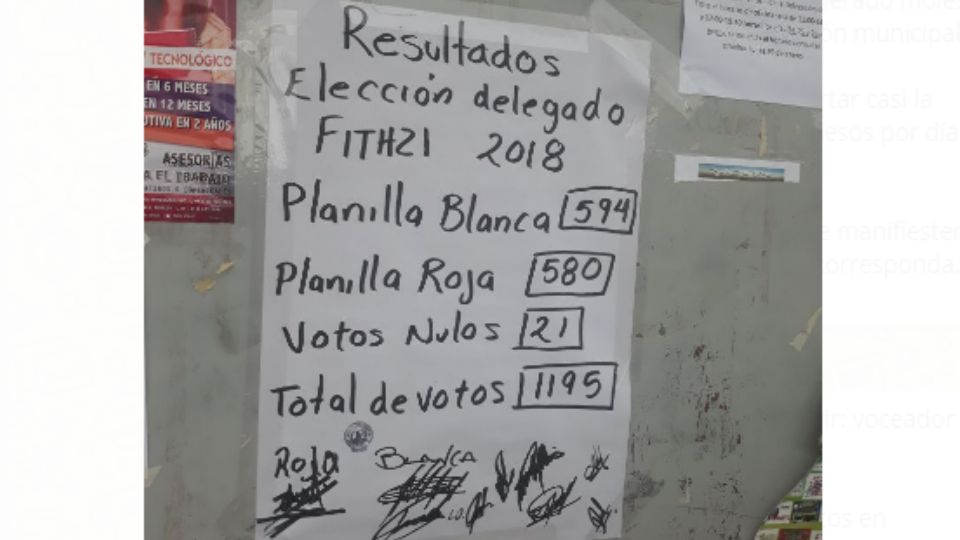 Resultados
Elección delegado
FITHZI 2018
Planilla Blanca 594
Planilla Roja 580
Votos Nulos 21
Total de votos 1195
Roja BLANCA
TECNOLÓGICO
EN 6 MESES
EN 12 MESES
UTIVA EN 2 AÑOS
ASESORÍAS
A EL TRABAJO
municipal
tar casi la
esos por día
e manifiesten
orresponda.
ir: voceador
os en